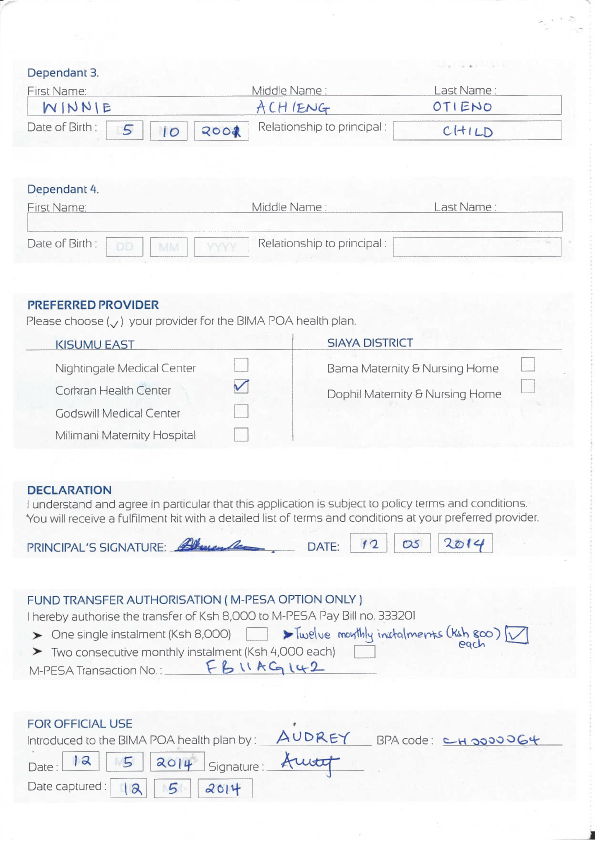 Dependant 3.
First Name: Middle Name : Last Name :
WINNIE ACHIENG OTIENO
Date of Birth : 5 10 2001 Relationship to principal : CHILD
Dependant 4.
First Name: Middle Name : Last Name :
Date of Birth : DD MM YYYY Relationship to principal :
PREFERRED PROVIDER
Please choose (✓) your provider for the BIMA POA health plan.
KISUMU EAST SIAYA DISTRICT
Nightingale Medical Center Bama Maternity & Nursing Home
Corkran Health Center ✓ Dophil Maternity & Nursing Home
Godswill Medical Center
Milimani Maternity Hospital
DECLARATION
I understand and agree in particular that this application is subject to policy terms and conditions.
You will receive a fulfilment kit with a detailed list of terms and conditions at your preferred provider.
PRINCIPAL'S SIGNATURE: DATE: 12 05 2014
FUND TRANSFER AUTHORISATION ( M-PESA OPTION ONLY )
I hereby authorise the transfer of Ksh 8,000 to M-PESA Pay Bill no. 333201
➤ One single instalment (Ksh 8,000) ➤ Twelve monthly instalments (Ksh 800) each ✓
➤ Two consecutive monthly instalment (Ksh 4,000 each)
M-PESA Transaction No. : FB11AG142
FOR OFFICIAL USE
Introduced to the BIMA POA health plan by : AUDREY BPA code : CH0000064
Date : 12 5 2014 Signature :
Date captured : 12 5 2014